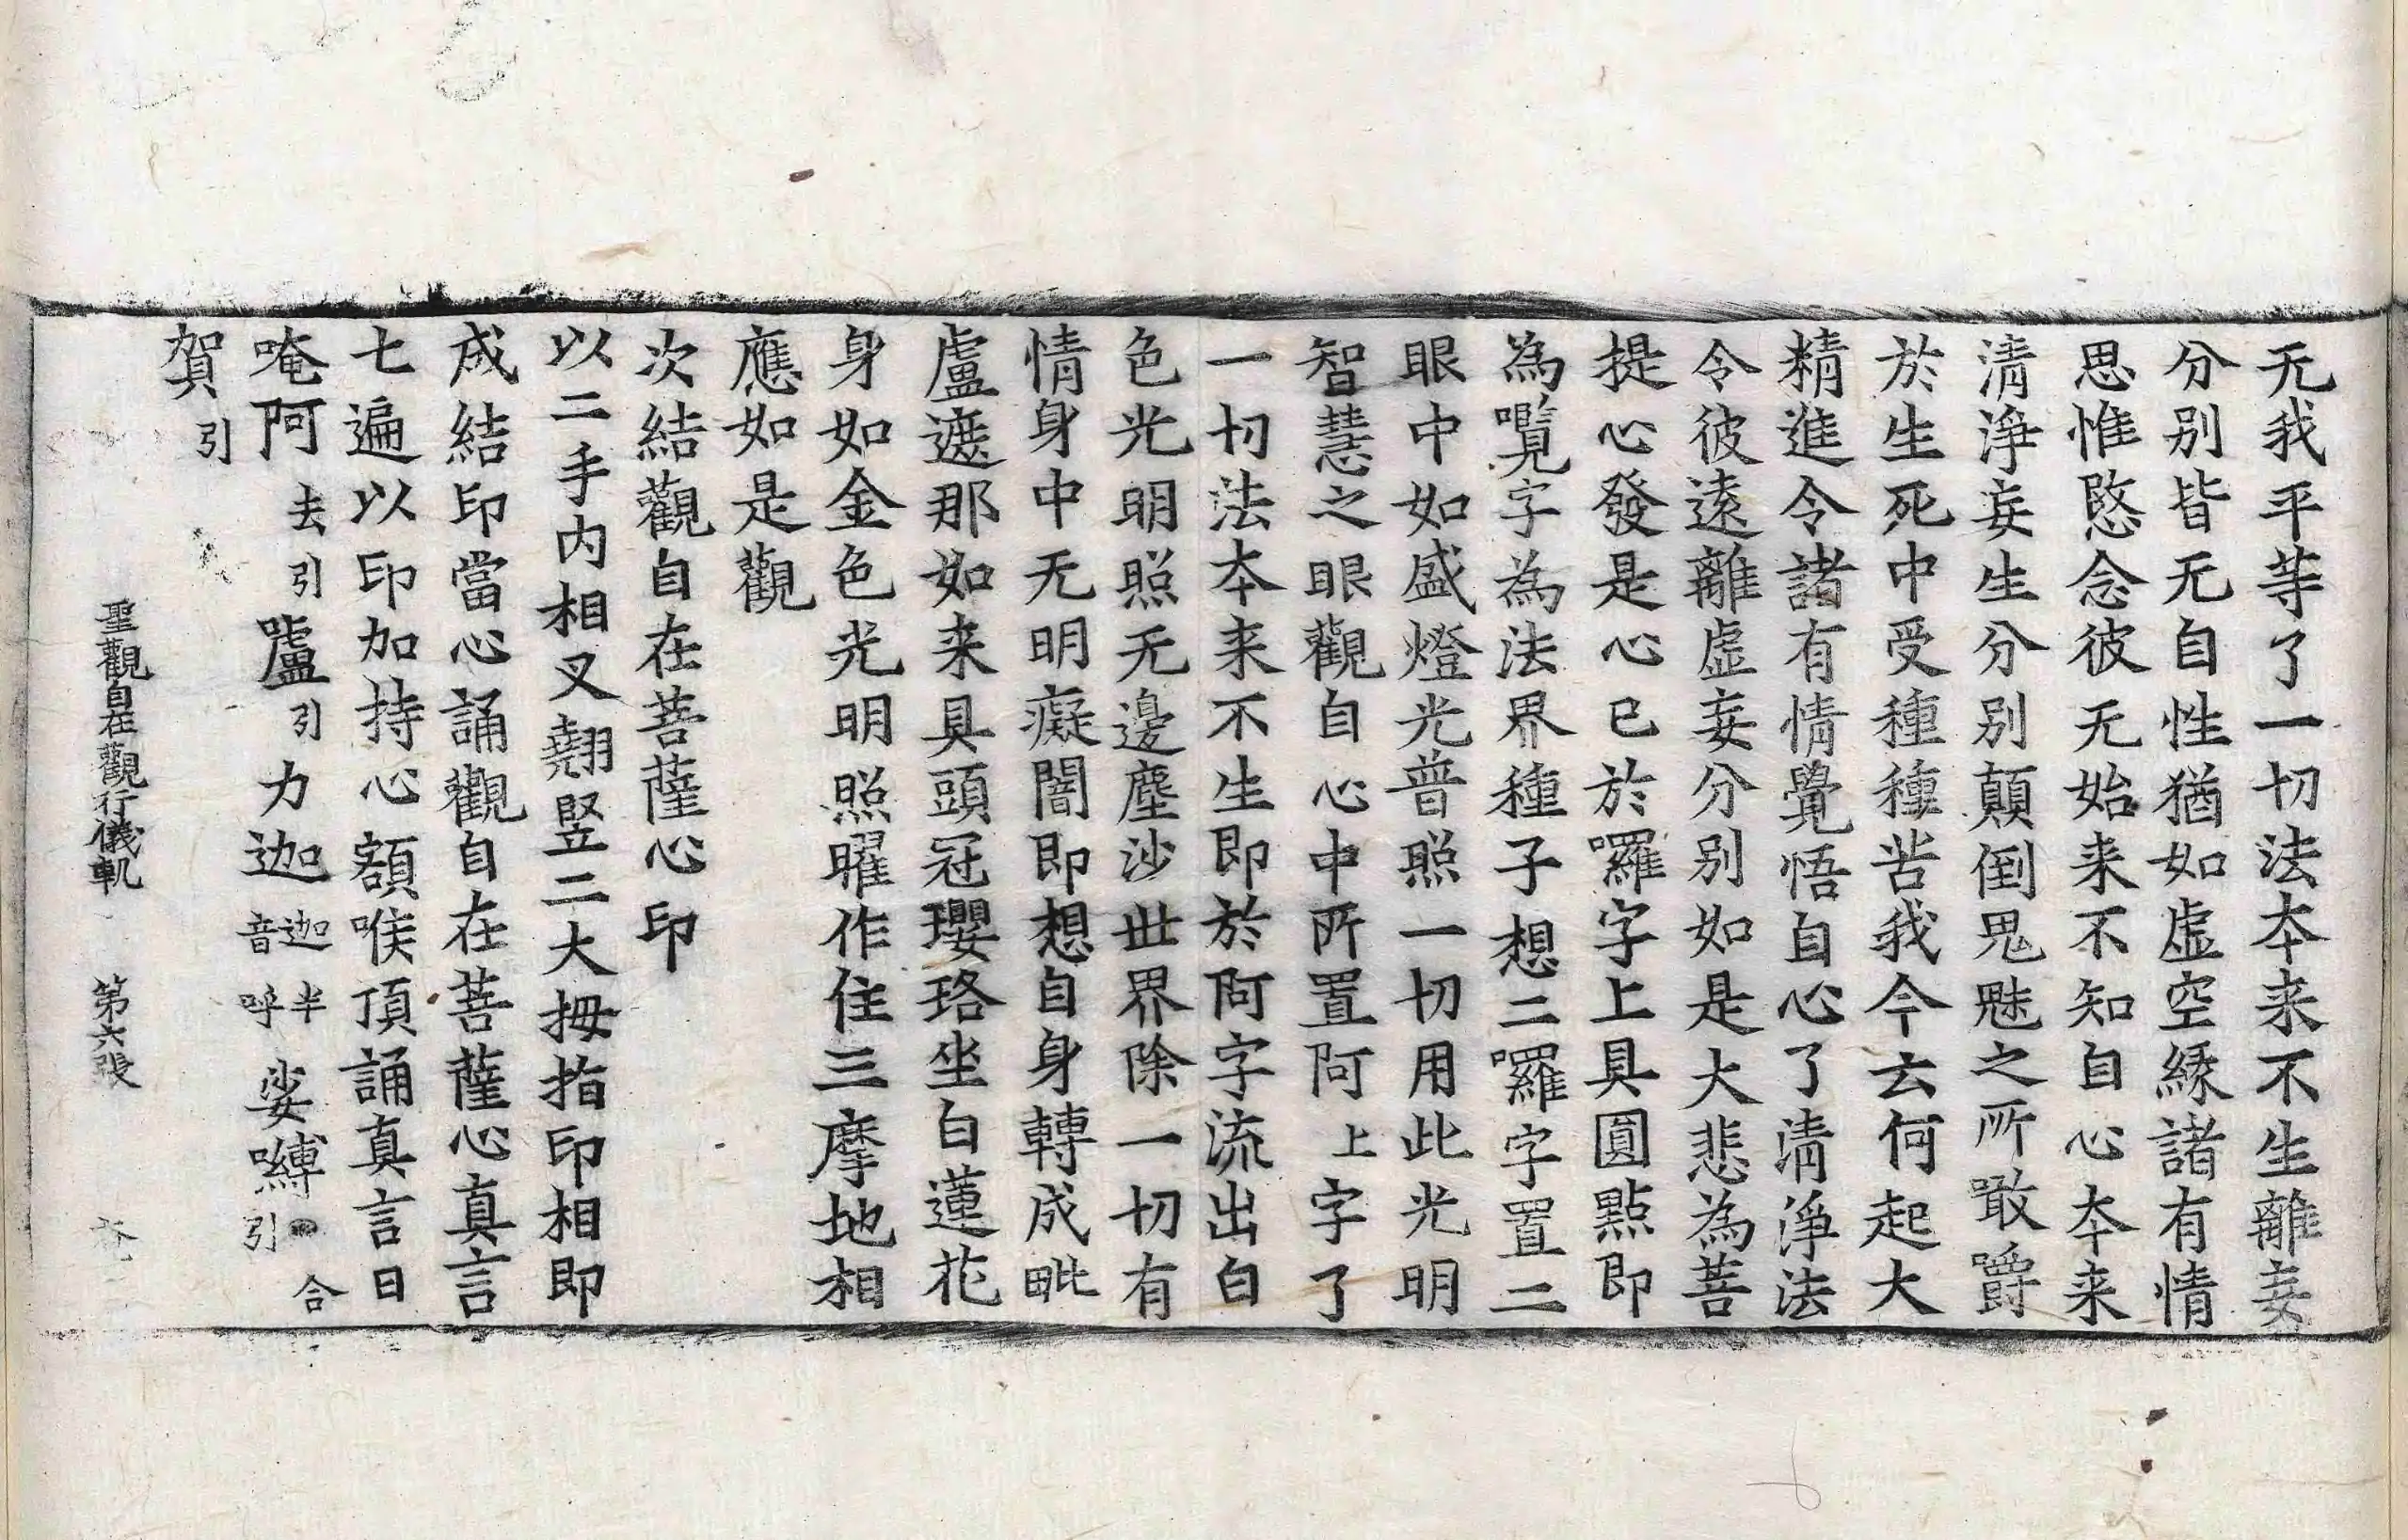 无我平等了一切法夲来不生離妄
分别皆无自性猶如虚空緣諸有情
思惟愍念彼无始来不知自心夲来
清淨妄生分别顛倒鬼魅之所噉嚼
於生死中受種種苦我今云何起大
精進令諸有情覺悟自心了清淨法
令彼遠離虚妄分别如是大悲為菩
提心發是心已於囉字上具圓點即
為囕字為法界種子想二囉字置二
眼中如盛燈光普照一切用此光明
智慧之眼觀自心中所置阿上字了
一切法夲来不生即於阿字流出白
色光明照无邊塵沙世界除一切有
情身中无明癡闇即想自身轉成毗
盧遮那如来具頭冠瓔珞坐白蓮花
身如金色光明照曜作住三摩地相
應如是觀
次結觀自在菩薩心印
以二手内相叉翹竪二大拇指印相即
成結印當心誦觀自在菩薩心真言
七遍以印加持心額喉頂誦真言曰
唵阿去引嚧引力迦迦半音呼娑嚩合引
賀引
聖觀自在觀行儀軌 第六張